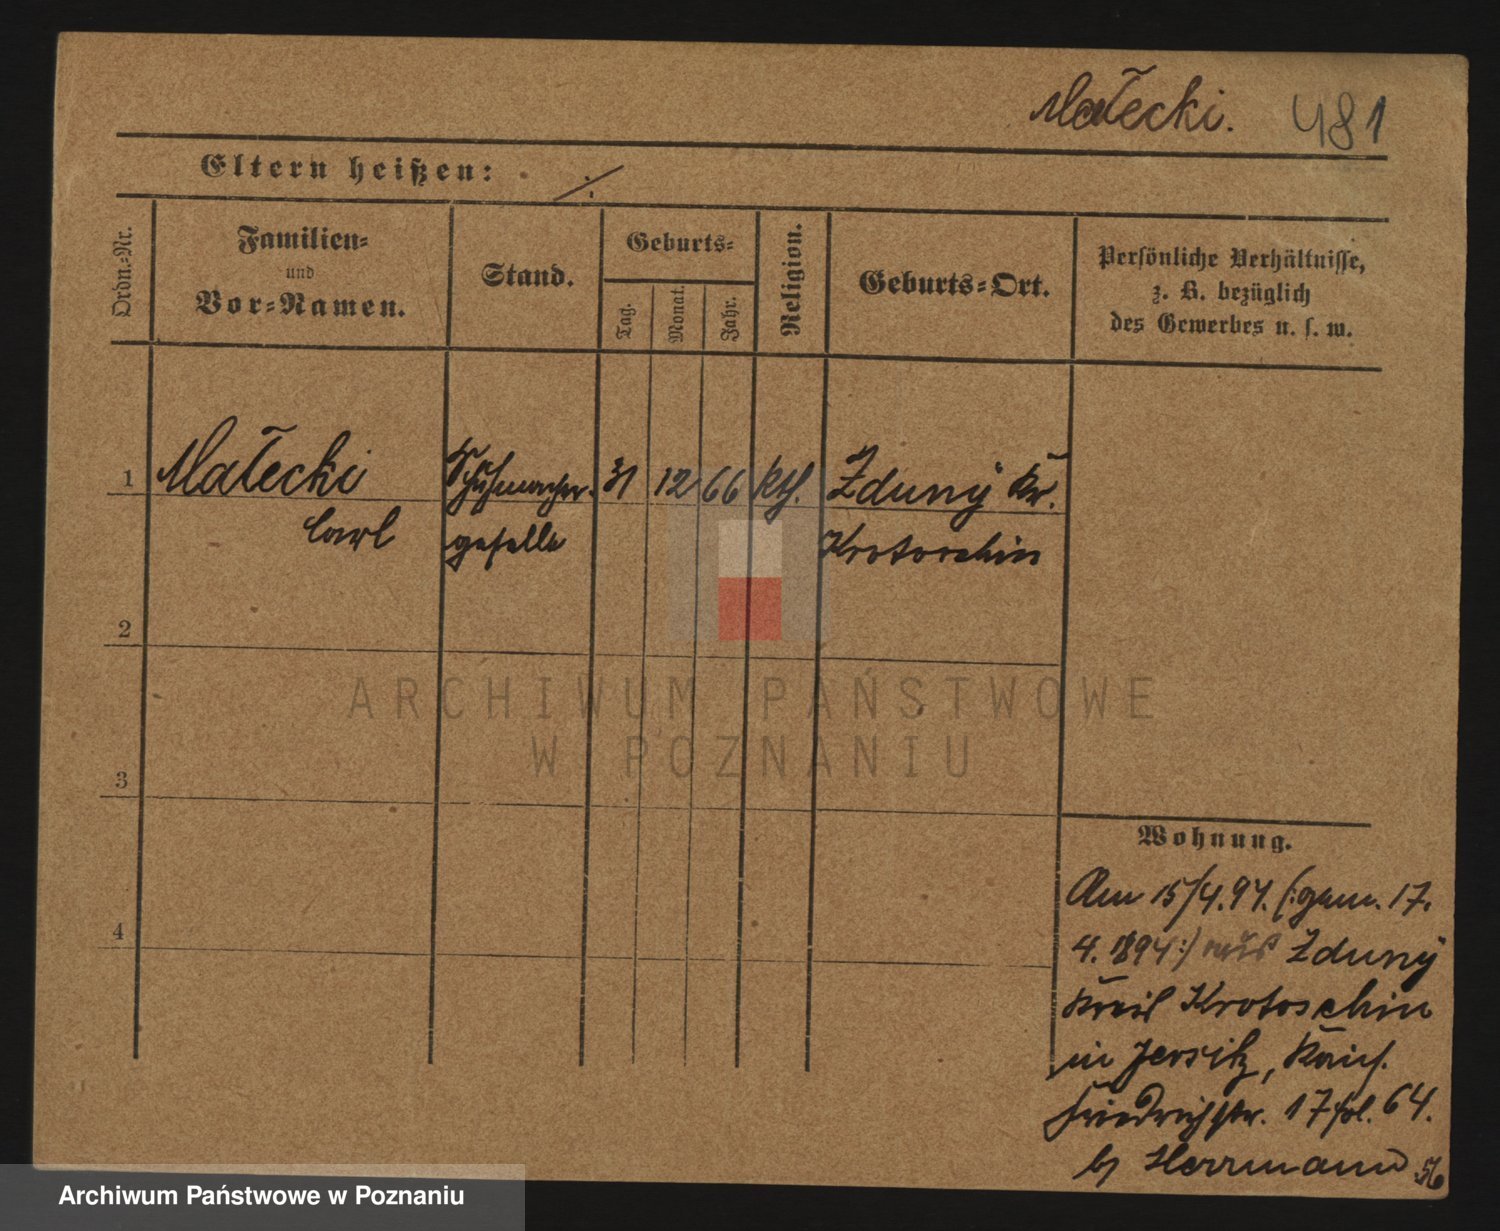 Małecki. 481
Eltern heißen: ./.
Ordn.-Nr.
Familien-
und
Vor-Namen.
Stand.
Geburts-
Tag.
Monat.
Jahr.
Religion.
Geburts-Ort.
Persönliche Verhältnisse,
z. B. bezüglich
des Gewerbes u. s. w.
1 Małecki Schuhmacher- 31 12 66 kth. Zduny Kr.
Carl geselle Krotoschin
2
3
4
ARCHIWUM PAŃSTWOWE
W POZNANIU
Wohnung.
Am 15/4.94. (:gem. 17.
4. 1894:) aus Zduny
Kreis Krotoschin
in Jersitz, Kais.
Friedrichstr. 17 fol. 64.
by Herrmann
Archiwum Państwowe w Poznaniu